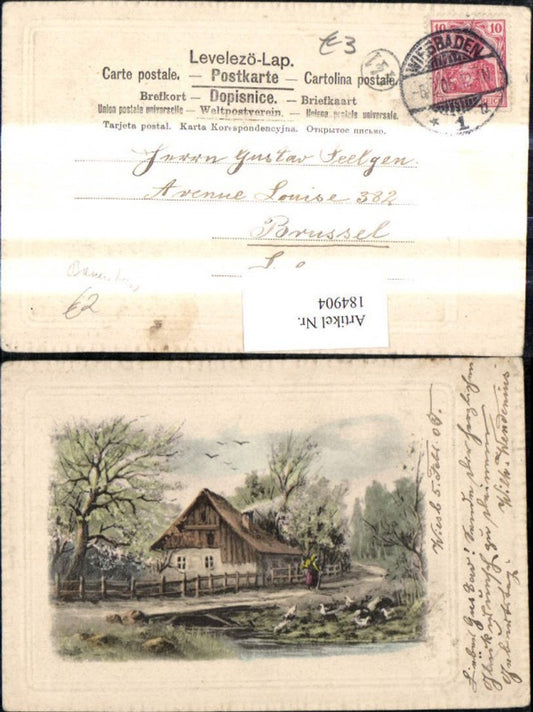 €3
Levelezö-Lap.
Carte postale. — Postkarte — Cartolina postale.
Brefkort — Dopisnice. — Briefkaart
Union postale universelle — Weltpostverein. — Union postale universale.
Tarjeta postal. Karta Korespondencyjna. Открытое письмо.
10 10
WIESBADEN
* 1
Herrn Gustav Seelgen.
Avenue Louise 382
Brussel
62
Artikel Nr.
184904
Wiesb. 5. Febr. 05.
Lieber Gustav! Sende Dir herzlichen
Glückwunsch zu Deinem
Geburtstag.